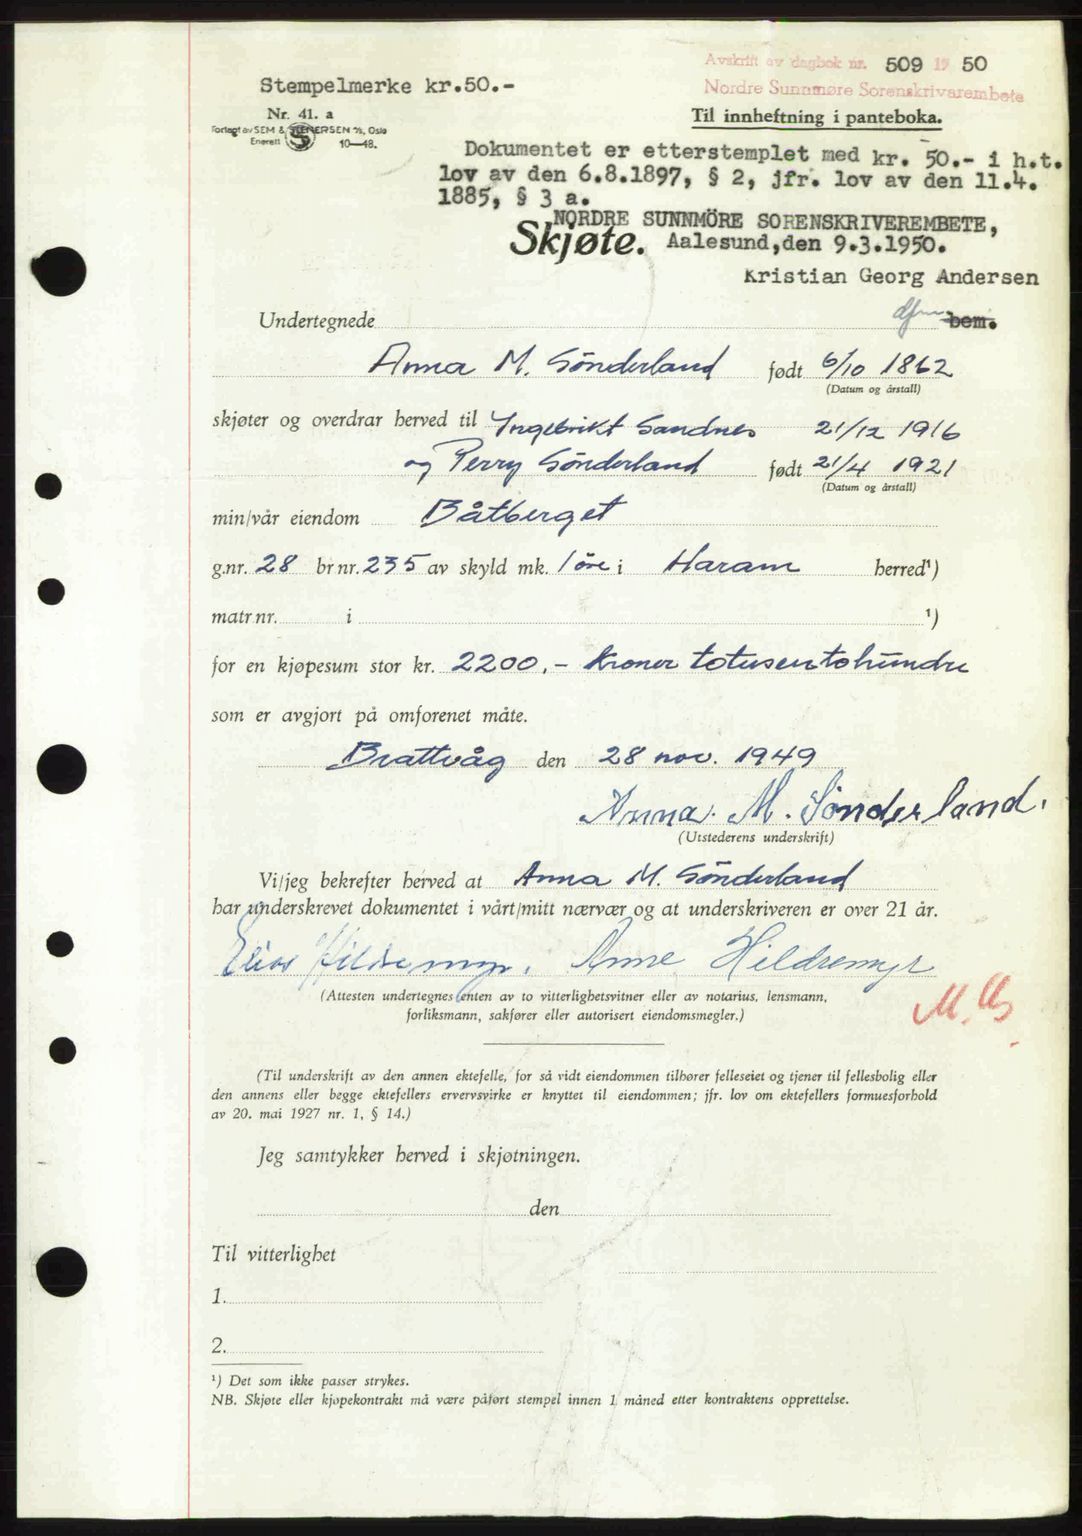 Avskrift av dagbok nr. 509 19 50
Nordre Sunnmøre Sorenskrivarembete
Stempelmerke kr.50.-
Nr. 41. a
Forlagt av SEM & STENERSEN A/S, Oslo
Enerett 10-48.
Til innheftning i panteboka.
Dokumentet er etterstemplet med kr. 50.- i h.t.
lov av den 6.8.1897, § 2, jfr. lov av den 11.4.
1885, § 3 a.
NORDRE SUNNMÖRE SORENSKRIVEREMBETE,
Skjøte. Aalesund,den 9.3.1950.
Kristian Georg Andersen
Undertegnede bem.
Anna M. Sönderland født 6/10 1862
(Datum og årstall)
skjøter og overdrar herved til Ingebrikt Sandnes 21/12 1916
og Perry Sönderland født 21/4 1921
(Datum og årstall)
min/vår eiendom Båtberget
g.nr. 28 br.nr. 235 av skyld mk. 1 öre i Haram herred¹)
matr.nr. i ¹)
for en kjøpesum stor kr. 2200,- Kroner totusentohundre
som er avgjort på omforenet måte.
Brattvåg den 28 nov. 1949
Anna. M. Sønderland.
(Utstederens underskrift)
Vi/jeg bekrefter herved at Anna M. Sönderland
har underskrevet dokumentet i vårt/mitt nærvær og at underskriveren er over 21 år.
Elias Hildremyr. Anne Hildremyr
(Attesten undertegnes enten av to vitterlighetsvitner eller av notarius, lensmann,
forliksmann, sakfører eller autorisert eiendomsmegler.)
(Til underskrift av den annen ektefelle, for så vidt eiendommen tilhører felleseiet og tjener til fellesbolig eller
den annens eller begge ektefellers ervervsvirke er knyttet til eiendommen; jfr. lov om ektefellers formuesforhold
av 20. mai 1927 nr. 1, § 14.)
Jeg samtykker herved i skjøtningen.
den
Til vitterlighet
1.
2.
¹) Det som ikke passer strykes.
NB. Skjøte eller kjøpekontrakt må være påført stempel innen 1 måned etter kontraktens opprettelse.